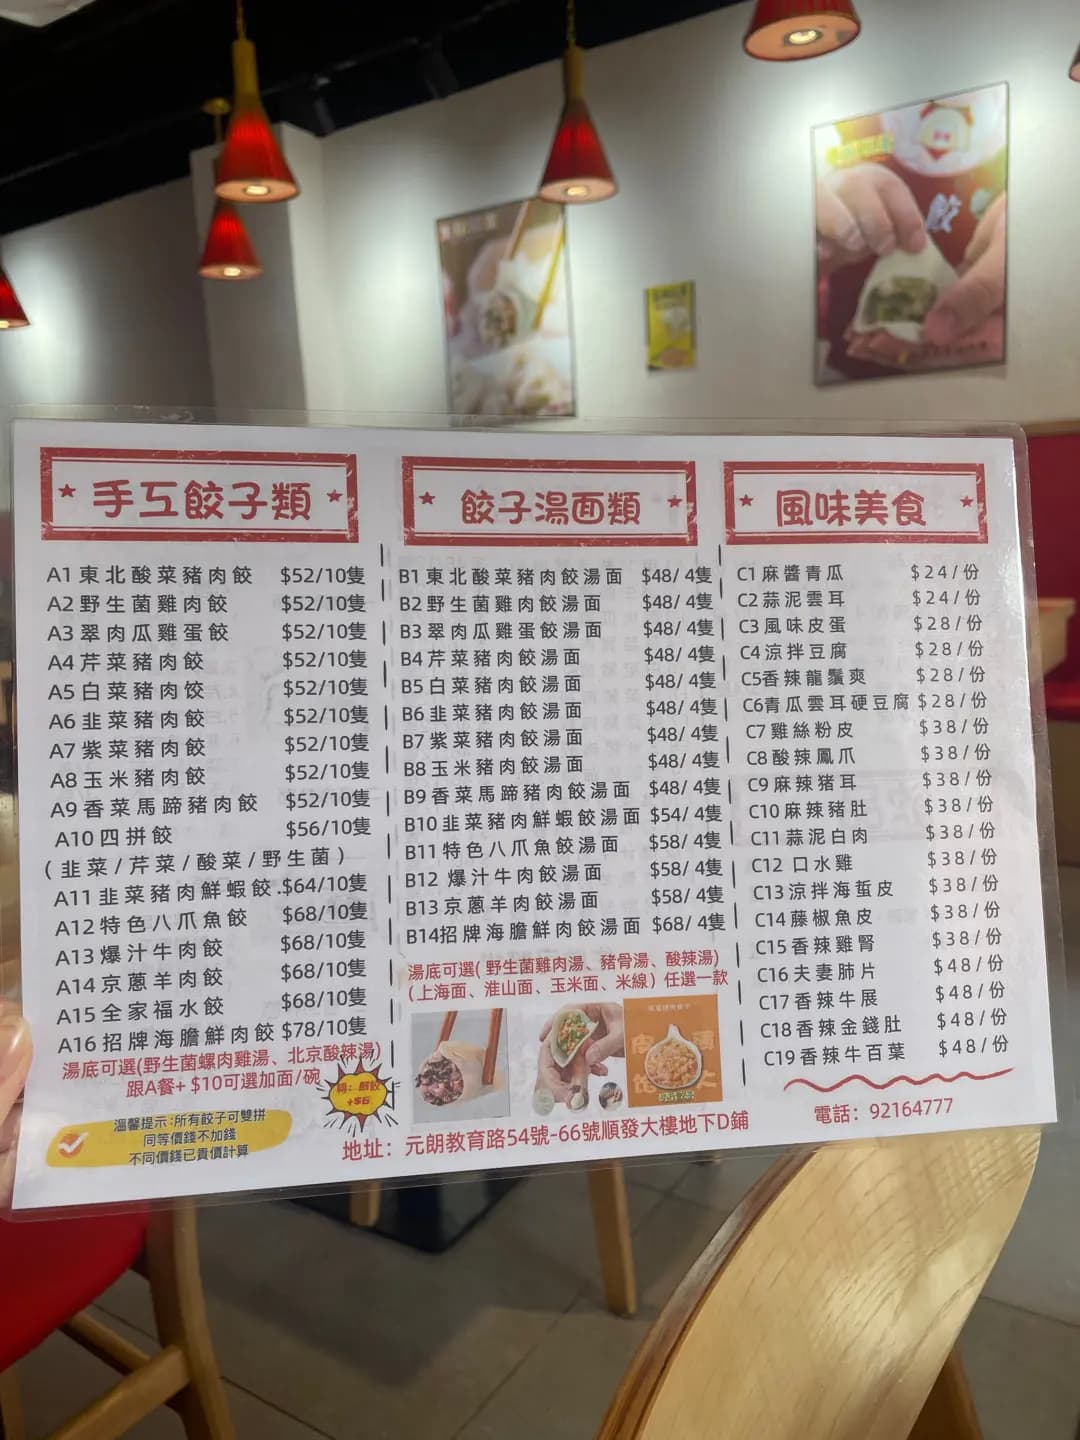 餃
手工餃子類
A1東北酸菜豬肉餃 $52/10隻
A2野生菌雞肉餃 $52/10隻
A3翠肉瓜雞蛋餃 $52/10隻
A4芹菜豬肉餃 $52/10隻
A5白菜豬肉饺 $52/10隻
A6韭菜豬肉餃 $52/10隻
A7紫菜豬肉餃 $52/10隻
A8玉米豬肉餃 $52/10隻
A9香菜馬蹄豬肉餃 $52/10隻
A10四拼餃 $56/10隻
(韭菜/芹菜/酸菜/野生菌)
A11韭菜豬肉鮮蝦餃.$64/10隻
A12特色八爪魚餃 $68/10隻
A13爆汁牛肉餃 $68/10隻
A14京蔥羊肉餃 $68/10隻
A15全家福水餃 $68/10隻
A16招牌海膽鮮肉餃 $78/10隻
湯底可選(野生菌螺肉雞湯、北京酸辣湯)
跟A餐+ $10可選加面/碗
轉：煎餃
+$6
溫馨提示:所有餃子可雙拼
同等價錢不加錢
不同價錢已貴價計算
餃子湯面類
B1東北酸菜豬肉餃湯面 $48/4隻
B2野生菌雞肉餃湯面 $48/4隻
B3翠肉瓜雞蛋餃湯面 $48/4隻
B4芹菜豬肉餃湯面 $48/4隻
B5白菜豬肉餃湯面 $48/4隻
B6韭菜豬肉餃湯面 $48/4隻
B7紫菜豬肉餃湯面 $48/4隻
B8玉米豬肉餃湯面 $48/4隻
B9香菜馬蹄豬肉餃湯面 $48/4隻
B10韭菜豬肉鮮蝦餃湯面 $54/4隻
B11特色八爪魚餃湯面 $58/4隻
B12 爆汁牛肉餃湯面 $58/4隻
B13京蔥羊肉餃湯面 $58/4隻
B14招牌海膽鮮肉餃湯面 $68/4隻
湯底可選( 野生菌雞肉湯、豬骨湯、酸辣湯)
(上海面、淮山面、玉米面、米線) 任選一款
風味美食
C1麻醬青瓜 $24/份
C2蒜泥雲耳 $24/份
C3風味皮蛋 $28/份
C4涼拌豆腐 $28/份
C5香辣龍鬚爽 $28/份
C6青瓜雲耳硬豆腐 $28/份
C7雞絲粉皮 $38/份
C8酸辣鳳爪 $38/份
C9麻辣猪耳 $38/份
C10麻辣豬肚 $38/份
C11蒜泥白肉 $38/份
C12 口水雞 $38/份
C13涼拌海蜇皮 $38/份
C14藤椒魚皮 $38/份
C15香辣雞腎 $38/份
C16夫妻肺片 $48/份
C17香辣牛展 $48/份
C18香辣金錢肚 $48/份
C19香辣牛百葉 $48/份
地址：元朗教育路54號-66號順發大樓地下D鋪
電話：92164777